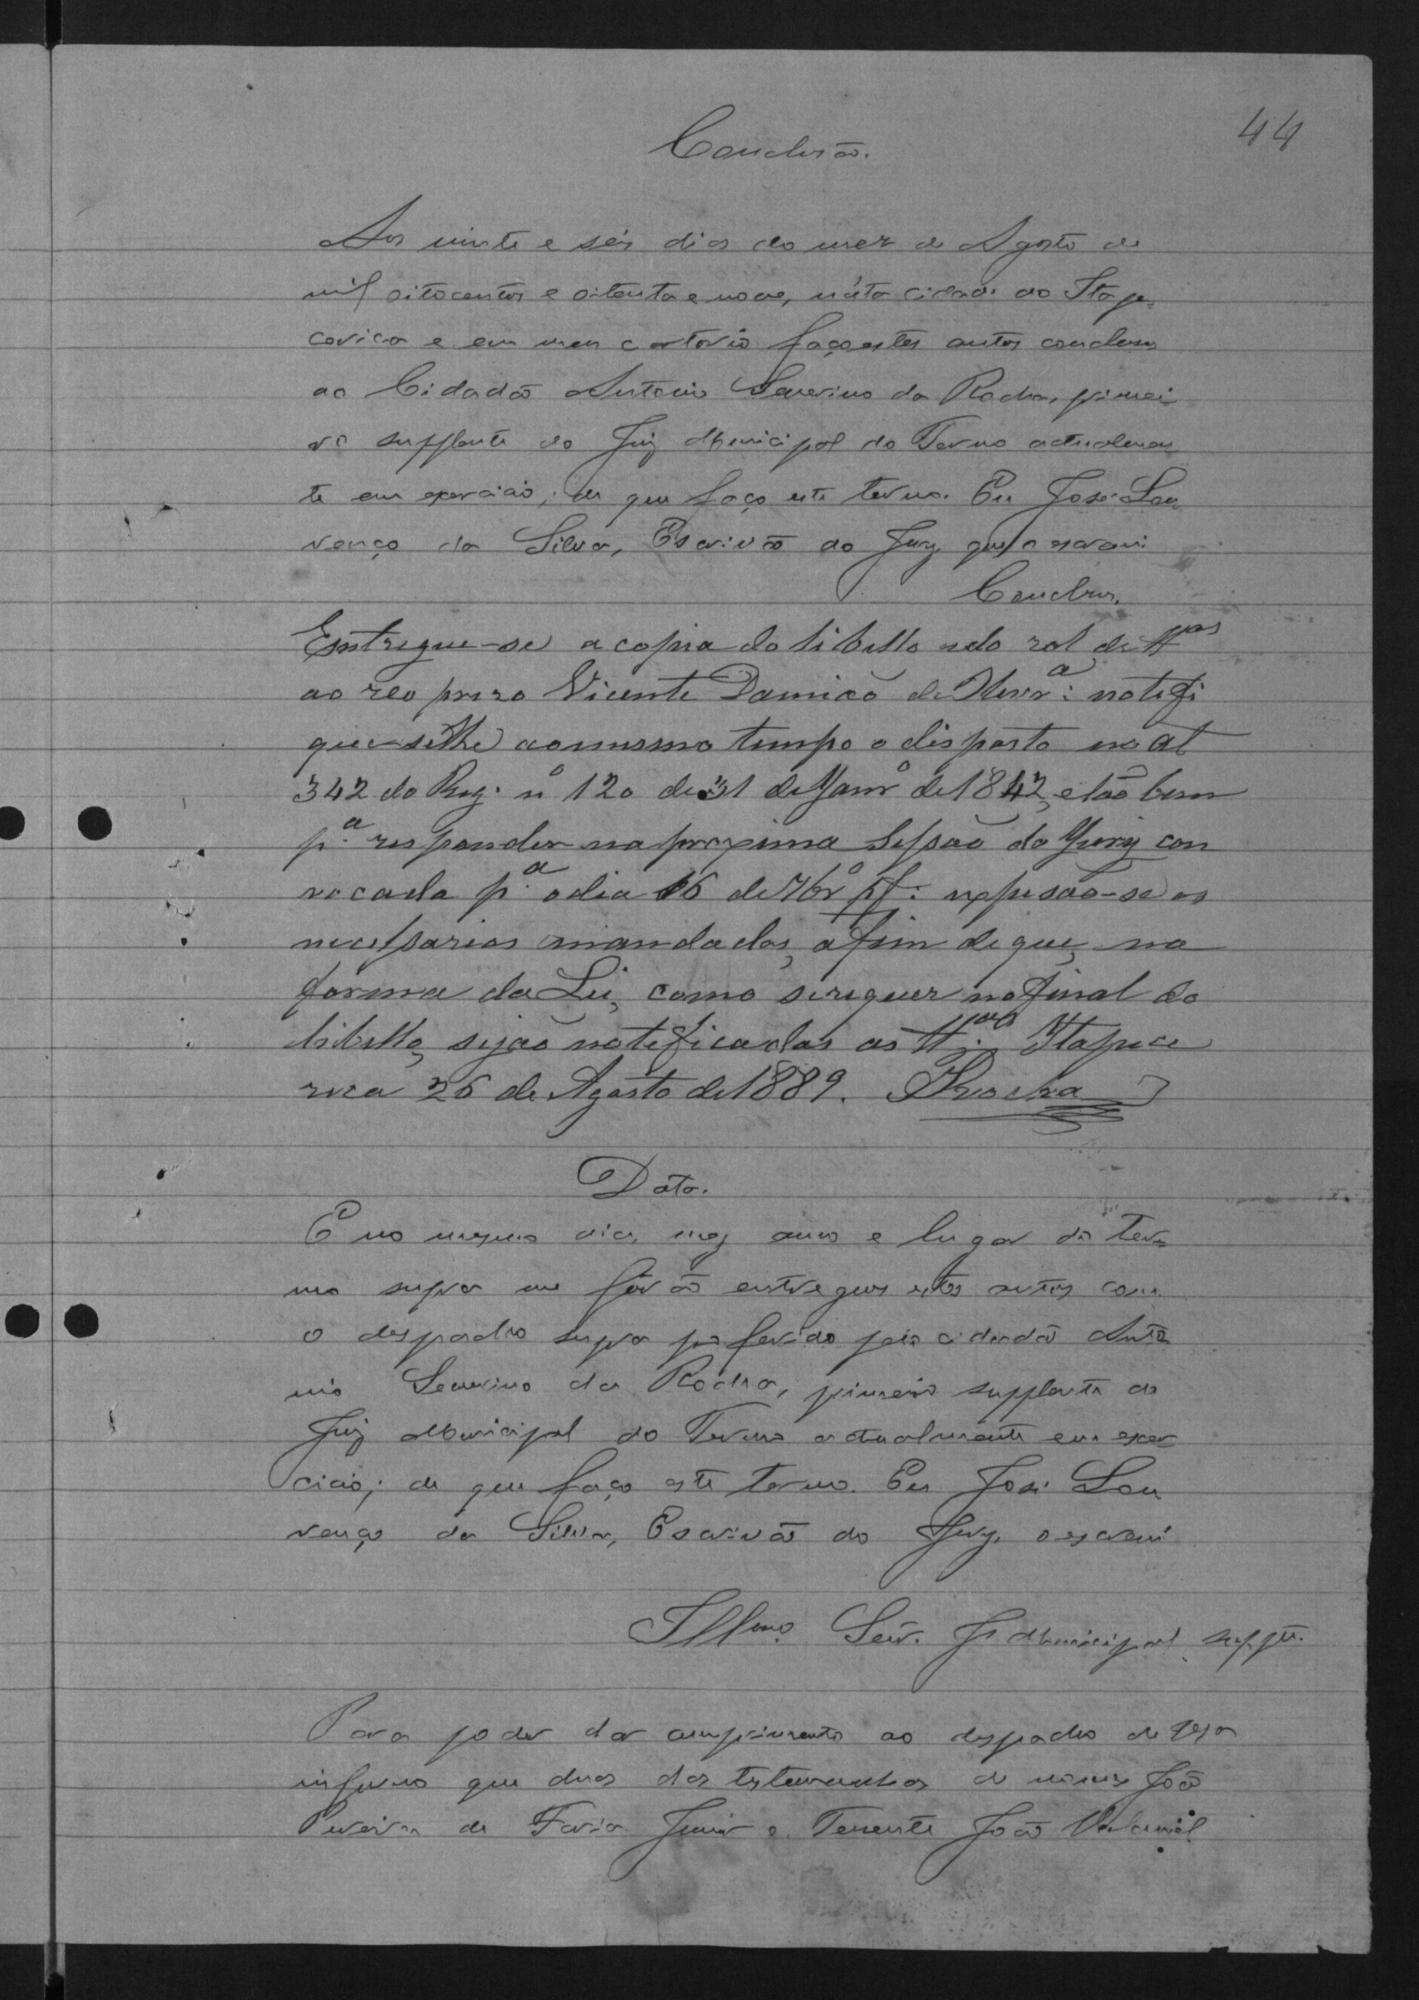 44
Conclusão.
Aos vinte e seis dias do mez de Agosto de
mil oitocentos e oitenta e nove, n'esta cidade do Itape
cerica e em meu cartorio faço estes autos conclusos
ao Cidadão Antonio Severino da Rocha, primei
ro supplente do Juiz Municipal do Termo actualmen
te em exercicio; de que faço este termo. Eu José Lou
renço da Silva, Escrivão do Jury que o escrevi
Conclusos.
Entregue-se a copia do libello e do rol de ttas
ao reo prezo Vicente Damião de Olivrª: notifi
que-se-lhe ao mesmo tempo o disposto no art
342 do Reg. nº 120 de 31 de Janrº de 1842, e tão bem
pª responder na proxima Sessão do Jury con
vocada pª o dia 16 de 7brº pf: expesão-se os
necessarios mandados, afim de que, na
fórma da Lei, como se requer no final do
libello, sejão notificadas as ttas. Itapece
rica 26 de Agosto de 1889. Rocha
Data.
E no mesmo dia, mez anno e lugar do ter
mo supra me forão entregues estes autos com
o despacho supra proferido pelo cidadão Anto
nio Severino da Rocha, primeiro supplente do
Juiz Municipal do Termo actualmente em exer
cicio; de que faço este termo. Eu José Lou
renço da Silva, Escrivão do Jury, o escrevi
Illmo. Senr. Jz Municipal suppte.
Para poder dar cumprimento ao despacho de
informo que duas das testemunhas de nomes João
Pereira de Faria Junior e Tenente João